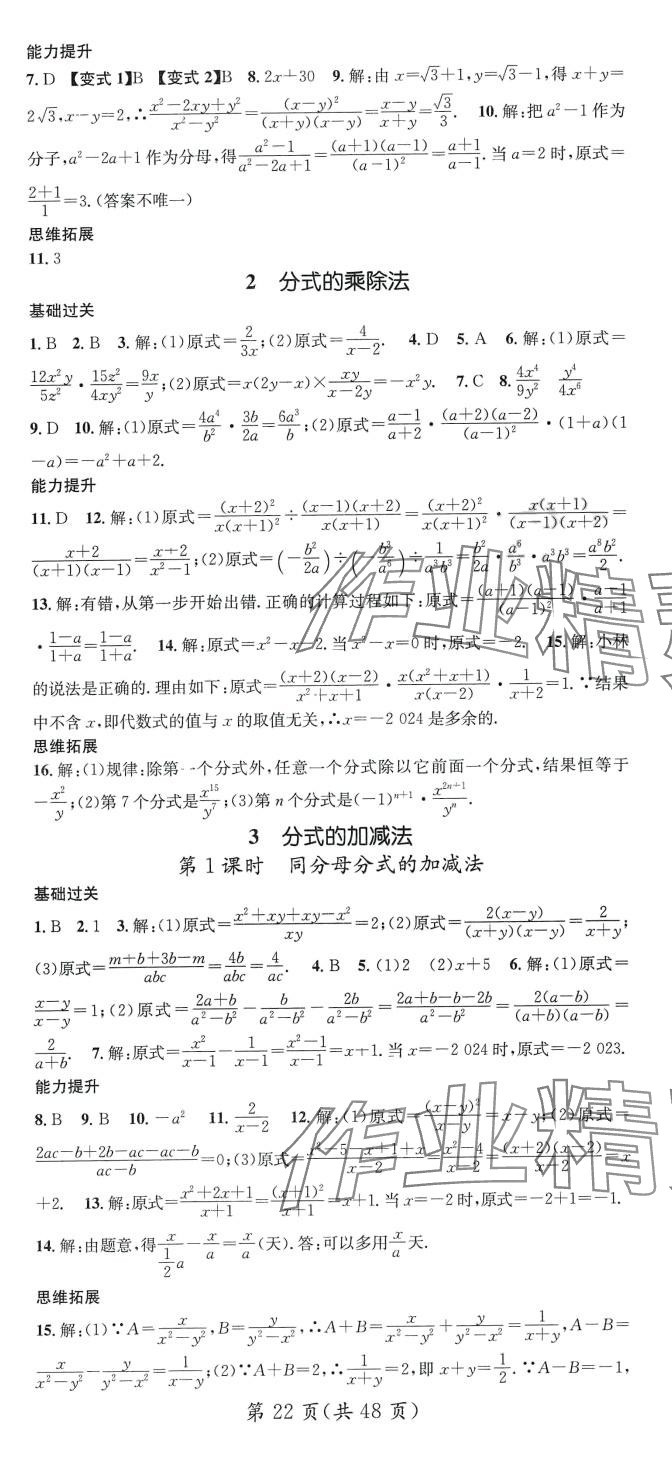 能力提升
7. D 【变式1】B 【变式2】B 8. 2x+30 9. 解:由 x=√3+1,y=√3-1,得 x+y=
2√3,x-y=2,∴(x²-2xy+y²)/(x²-y²)=(x-y)²/((x+y)(x-y))=(x-y)/(x+y)=√3/3. 10. 解:把 a²-1 作为
分子,a²-2a+1 作为分母,得(a²-1)/(a²-2a+1)=((a+1)(a-1))/(a-1)²=(a+1)/(a-1).当 a=2 时,原式=
(2+1)/1=3.(答案不唯一)
思维拓展
11. 3
2 分式的乘除法
基础过关
1. B 2. B 3. 解:(1)原式=2/(3x);(2)原式=4/(x-2). 4. D 5. A 6. 解:(1)原式=
(12x²y)/(5z²)·(15z²)/(4xy²)=(9x)/y;(2)原式=x(2y-x)×(xy)/(x-2y)=-x²y. 7. C 8. (4x⁴)/(9y²) y⁴/(4x⁶)
9. D 10. 解:(1)原式=(4a⁴)/b²·(3b)/(2a)=(6a³)/b;(2)原式=(a-1)/(a+2)·((a+2)(a-2))/(a-1)²·(1+a)(1
-a)=-a²+a+2.
能力提升
11. D 12. 解:(1)原式=(x+2)²/(x(x+1)²)÷((x-1)(x+2))/(x(x+1))=(x+2)²/(x(x+1)²)·(x(x+1))/((x-1)(x+2))=
(x+2)/((x+1)(x-1))=(x+2)/(x²-1);(2)原式=(-b²/(2a))÷(-b³/a⁶)÷1/(a³b³)=b²/(2a)·a⁶/b³·a³b³=(a⁸b²)/2.
13. 解:有错,从第一步开始出错.正确的计算过程如下:原式=((a+1)(a-1))/(a-1)²·(a-1)/(a+1)
·(1-a)/(1+a)=(1-a)/(1+a). 14. 解:原式=x²-x-2.当 x²-x=0 时,原式=-2. 15. 解:小林
的说法是正确的.理由如下:原式=((x+2)(x-2))/(x²+x+1)·(x(x²+x+1))/(x(x-2))·1/(x+2)=1.∵结果
中不含 x,即代数式的值与 x 的取值无关,∴x=-2 024 是多余的.
思维拓展
16. 解:(1)规律:除第一个分式外,任意一个分式除以它前面一个分式,结果恒等于
-x²/y;(2)第 7 个分式是x¹⁵/y⁷;(3)第 n 个分式是(-1)ⁿ⁺¹·x²ⁿ⁺¹/yⁿ.
3 分式的加减法
第 1 课时 同分母分式的加减法
基础过关
1. B 2. 1 3. 解:(1)原式=(x²+xy+xy-x²)/(xy)=2;(2)原式=(2(x-y))/((x+y)(x-y))=2/(x+y);
(3)原式=(m+b+3b-m)/(abc)=(4b)/(abc)=4/(ac). 4. B 5. (1)2 (2)x+5 6. 解:(1)原式=
(x-y)/(x-y)=1;(2)原式=(2a+b)/(a²-b²)-b/(a²-b²)-(2b)/(a²-b²)=(2a+b-b-2b)/(a²-b²)=(2(a-b))/((a+b)(a-b))=
2/(a+b). 7. 解:原式=x²/(x-1)-1/(x-1)=(x²-1)/(x-1)=x+1.当 x=-2 024 时,原式=-2 023.
能力提升
8. B 9. B 10. -a² 11. 2/(x-2) 12. 解:(1)原式=(x-y)²/(x-y)=x-y;(2)原式=
(2ac-b+2b-ac-ac-b)/(ac-b)=0;(3)原式=(x²-5-x+1+x)/(x-2)=(x²-4)/(x-2)=((x+2)(x-2))/(x-2)=x
+2. 13. 解:原式=(x²+2x+1)/(x+1)=(x+1)²/(x+1)=x+1.当 x=-2 时,原式=-2+1=-1.
14. 解:由题意,得x/(1/2 a)-x/a=x/a(天).答:可以多用x/a天.
思维拓展
15. 解:(1)∵A=x/(x²-y²),B=y/(y²-x²),∴A+B=x/(x²-y²)+y/(y²-x²)=1/(x+y),A-B=
x/(x²-y²)-y/(y²-x²)=1/(x-y);(2)∵A+B=2,∴1/(x+y)=2,即 x+y=1/2.∵A-B=-1,
第 22 页(共 48 页)